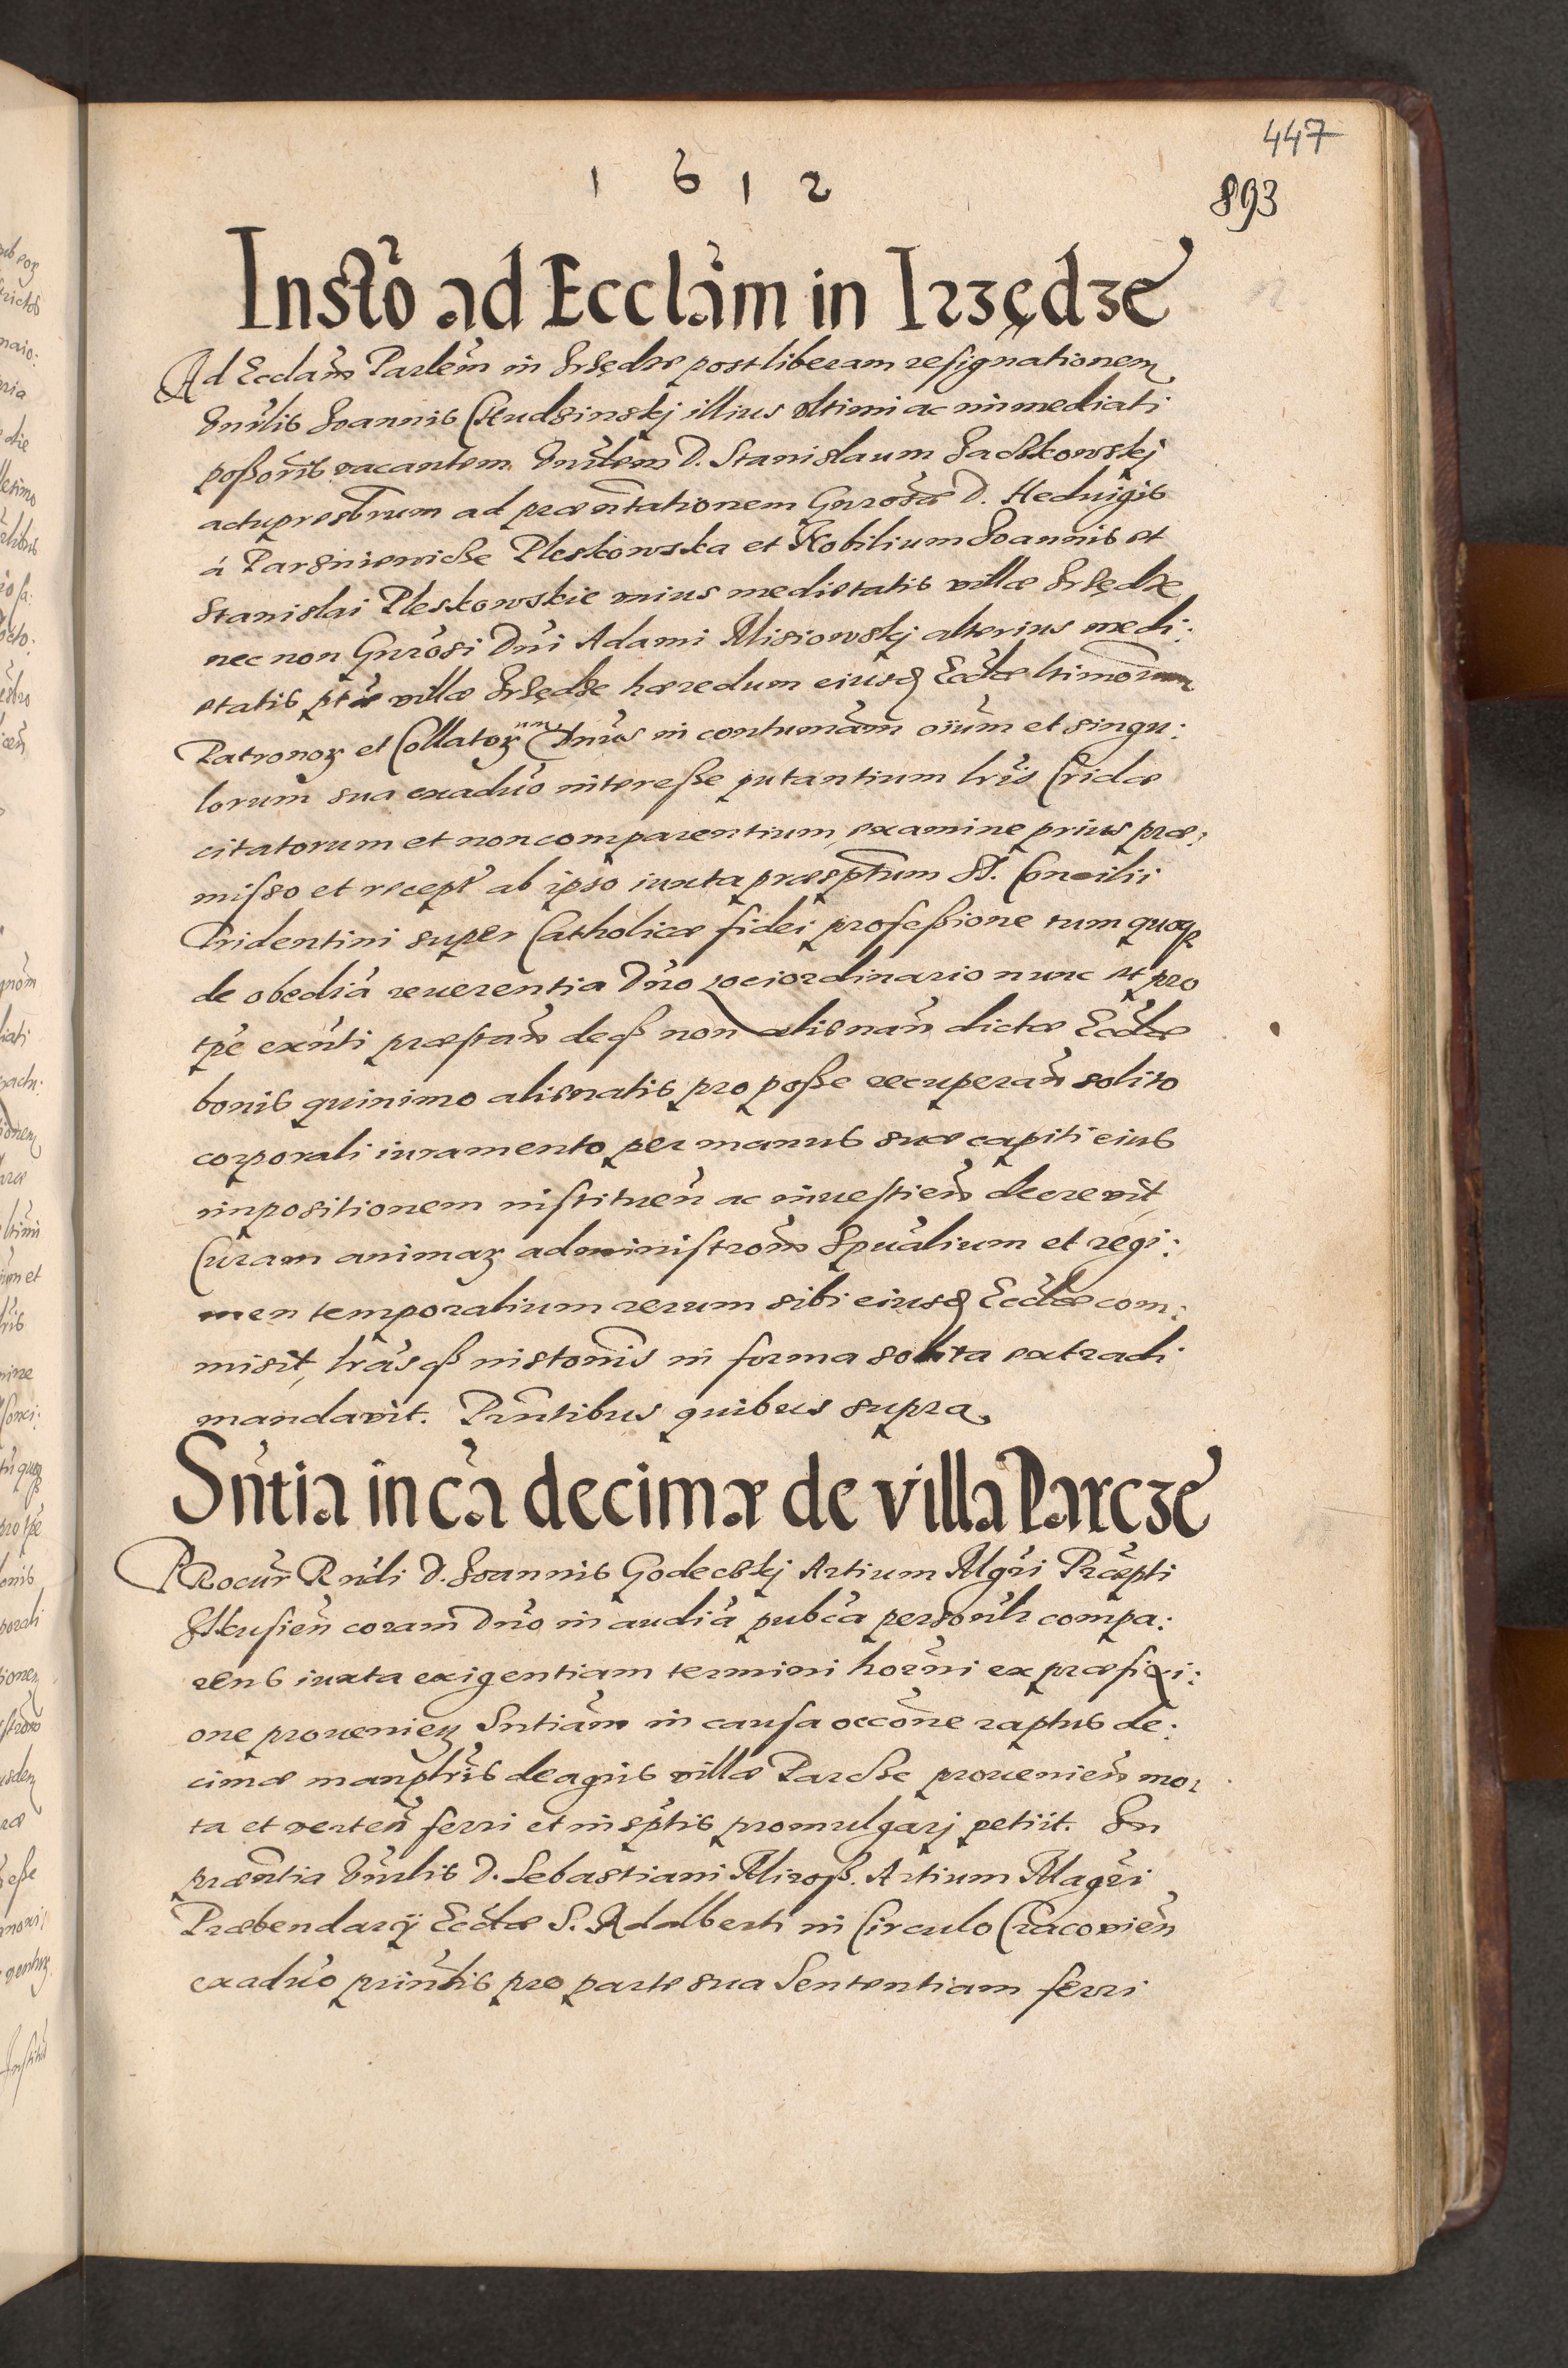 447
1 6 1 2
893
Insto ad Ecclam in Irzędze
Ad Ecclam Parlem in Irzędze post liberam resignationem
Dnilis Joannis Chudzinskj illius ultimi ac immediati
possoris vacantem Dnilem D. Stanislaum Jaczkowskj
actuprestrum ad praentationem Gnrosae D. Hedvigis
à Parzniewicze Pleskowska et Nobilium Joannis et
Stanislai Pleskowskie unius medietatis villae Irzędze
nec non Gnrosi Dni Adami Misiowskj alterius medi:
etatis ptae villae Irzędze haeredum eiusd Ecclae ltimorum
Patronoʒ et Collatoʒ Dnus in contumam oium et singu:
lorum sua exaduo interesse putantium lris Cridae
citatorum et non comparentium, examine prius prae:
misso et recept ab ipso iuxta praesptum St. Concilii
Tridentini super Catholicae fidei professione tum quoqꝫ
de obedia reverentia Dno Lociordinario nunc et pro
tpe exnti praestan deqß non alienan dictae Ecclae
bonis quinimo alienatis pro posse recuperan solito
corporali iuramento per manus suae capiti eius
impositionem instituen ac investien decrevit,
Curam animaʒ administrom Spualium et regi:
men temporalium rerum sibi eiusd Ecclae com:
misit, lrasqß instonis in forma solita extradi
mandavit. Pntibus quibus supra.
Sntia in ca decimae de villa Parcze
PRocur Rndi D. Joannis Godecskj Artium Mgri Praepti
Ilkusien coram Dno in audia pubca personlr compa:
rens iuxta exigentiam termini horni ex praefixi:
one provenien Sntiam in causa occone raptus de:
cimae manplris de agris villae Parcze provenien mo:
ta et verten ferri et in sptis promulgarj petiit. In
praentia Dnilis D. Sebastiani Miroß. Artium Magri
Praebendarij Ecclae S. Adalberti in Circulo Cracovien
exaduo prinlis pro parte sua Sententiam ferri